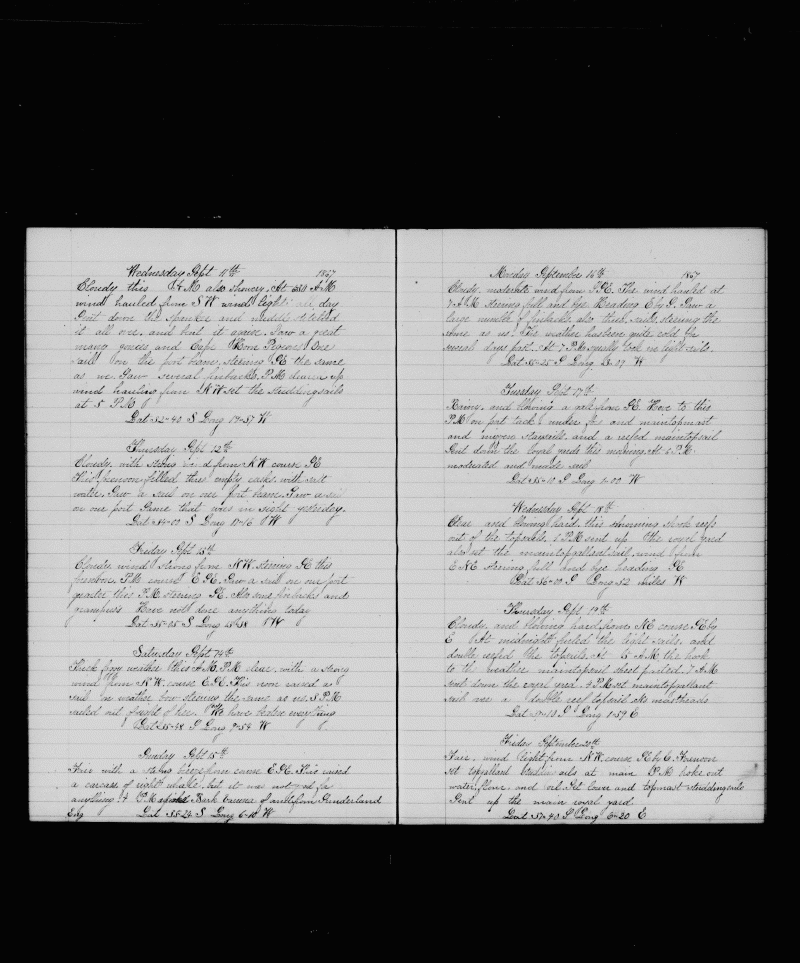 Wednesday Sept 11th 1867
Cloudy this A.M also showery. At A.M
wind hauled from S W wind light all day
Sent down the spanker and middle stitched
it all over, and bent it again. Saw a great
many goneys and Cape Horn Pigeons One
sail on the port beam, steering SE the same
as us Saw several finbacks. P.M cleared up
wind hauling from N W set the studdingsails
at 5 P.M.
Lat 32-40 S Long 19-57 W
Thursday Sept 12th
Cloudy, with strong wind from N.W. course SE
This forenoon filled three empty casks with salt
water. Saw a sail on our port beam. Saw a sail
on our port beam that was in sight yesterday.
Lat 34-00 S Long 17-16 W
Friday Sept 13th
Cloudy, wind strong from N.W. steering SE this
forenoon. P.M. course E.S.E. Saw a sail on our port
quarter this P.M. steering SE. Also some finbacks and
grampuss Have not done anything today
Lat 35-05 S Long 13-38 W
Saturday Sept 14th
Thick foggy weather this A.M. P.M clear, with a strong
wind from N.W. course E.S.E. This noon raised a
sail on weather bow steering the same as us. 5 P.M
sailed out of sight of her. We have beaten everything
Lat 35-38 S Long 9-54 W
Sunday Sept 15th
Fair with a stiff breeze from same E.S.E. This raised
a carcass of right whale, but it was not good for
anything. 4 P.M. spoke Bark of and from Sunderland
Eng Lat 35-24 S Long 6-10 W
Monday September 16th 1867
Cloudy, moderate wind from S.SE. The wind hauled at
7 A.M. steering full and bye Heading E by S. Saw a
large number of finbacks, also three sails, steering the
same as us. The weather has been quite cold for
several days past. At 7 P.M squally took in light sails.
Lat 35-25 S Long 3-27 W
Tuesday Sept 17th
Rainy, and blowing a gale from SE. Hove to this
P.M on port tack under fore and maintopmast
and mizzen staysails, and a reefed maintopsail
Sent down the royal yards this morning. At 6 P.M.
moderated and made sail
Lat 35-10 S Long 1-00 W
Wednesday Sept 18th
Clear and blowing hard, this morning shook reefs
out of the topsails, 6 P.M sent up the royal yard
also set the maintopgallantsail, wind from
E.N.E steering full and bye heading SE
Lat 36-00 S Long 52 miles W
Thursday Sept 19th
Cloudy, and blowing hard from NE course SE by
E At midnight furled the light sails, and
double reefed the topsails. At 5 A.M. the hook
to the weather maintopsail sheet parted. 7 A.M
sent down the royal yard. 4 P.M set maintopgallant
sail over a double reef topsail. No mastheads
Lat 37-12 S Long 1-59 E
Friday September 20th
Fair, wind light from N.W. course SE by E. Forenoon
set topgallant studdingsails at main P.M broke out
water, flour, and oil. Set lower and topmast studdingsails
Sent up the main royal yard
Lat 37-40 S Long 5-20 E